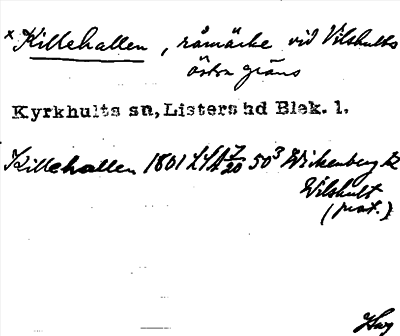 x Killehallen, råmärke vid Vilshults
östra gräns
Kyrkhults sn, Listers hd Blek. l.
Killehallen 1801 LSA 7/20 50³ Wirkenberg bz
Wilshult
(prot.)